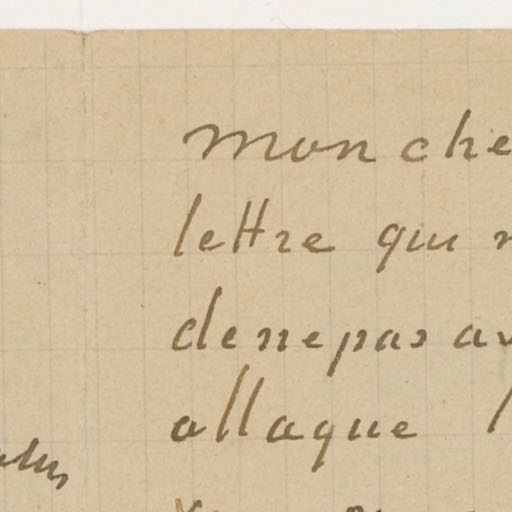 Mon che
lettre qui
de ne pas av
attaque